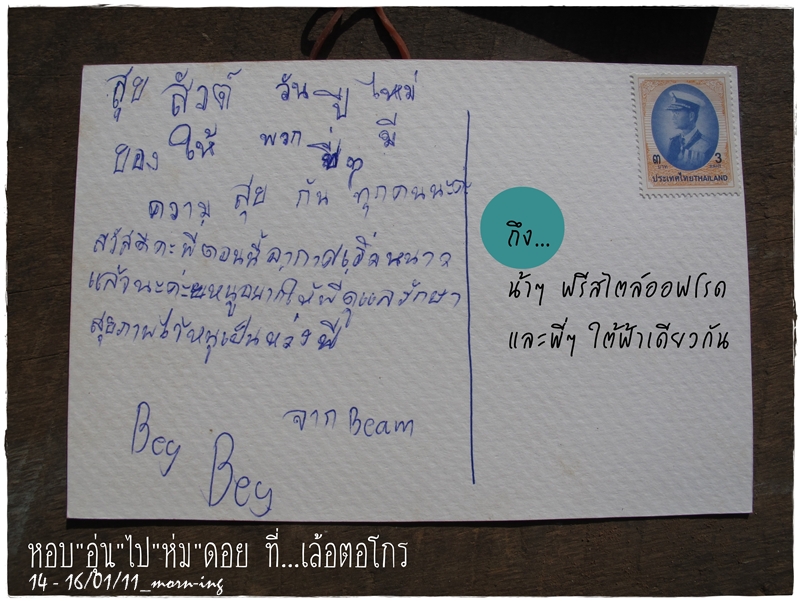 สุข สัวต์ วัน ปี ไหม่
ของ ให้ พวก พี่ๆ มี
ความ สุข กัน ทุกคนนะค่ะ
สวัสดีคะพี่ตอนนี้อากาศเริ่มหนาว
แล้วนะค่ะหนูอยากให้พี่ดูแลรักษา
สุขภาพไว้หนูเป็นหว่งพี่
จาก Beam
Bey
Bey
๓ 3
ประเทศไทย THAILAND
ถึง...
น้าๆ ฟรีสไตล์ออฟโรด
และพี่ๆ ใต้ฟ้าเดียวกัน
หอบ"อุ่น"ไป"ห่ม"ดอย ที่...เล้อตอโกร
14 - 16/01/11_morn-ing